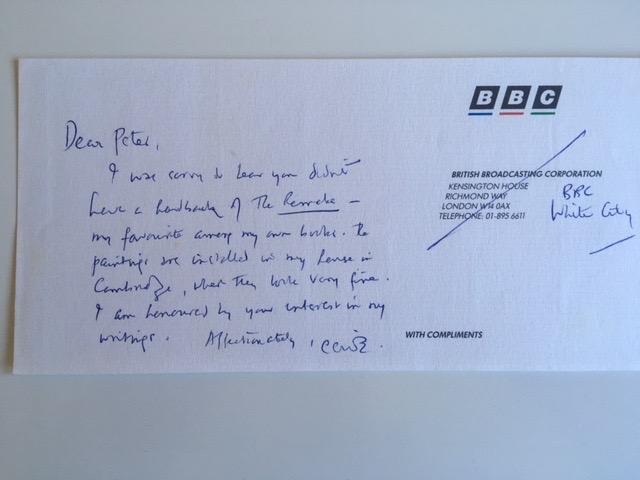 BBC
Dear Peter,
I was sorry to hear you didn't
have a hardback of The Remake –
my favourite among my own books. The
paintings are installed in my house in
Cambridge, where they look very fine.
I am honoured by your interest in my
writings. Affectionately, Clive.
BRITISH BROADCASTING CORPORATION
KENSINGTON HOUSE
RICHMOND WAY
LONDON W14 0AX
TELEPHONE: 01-895 6611
BBC
White City
WITH COMPLIMENTS